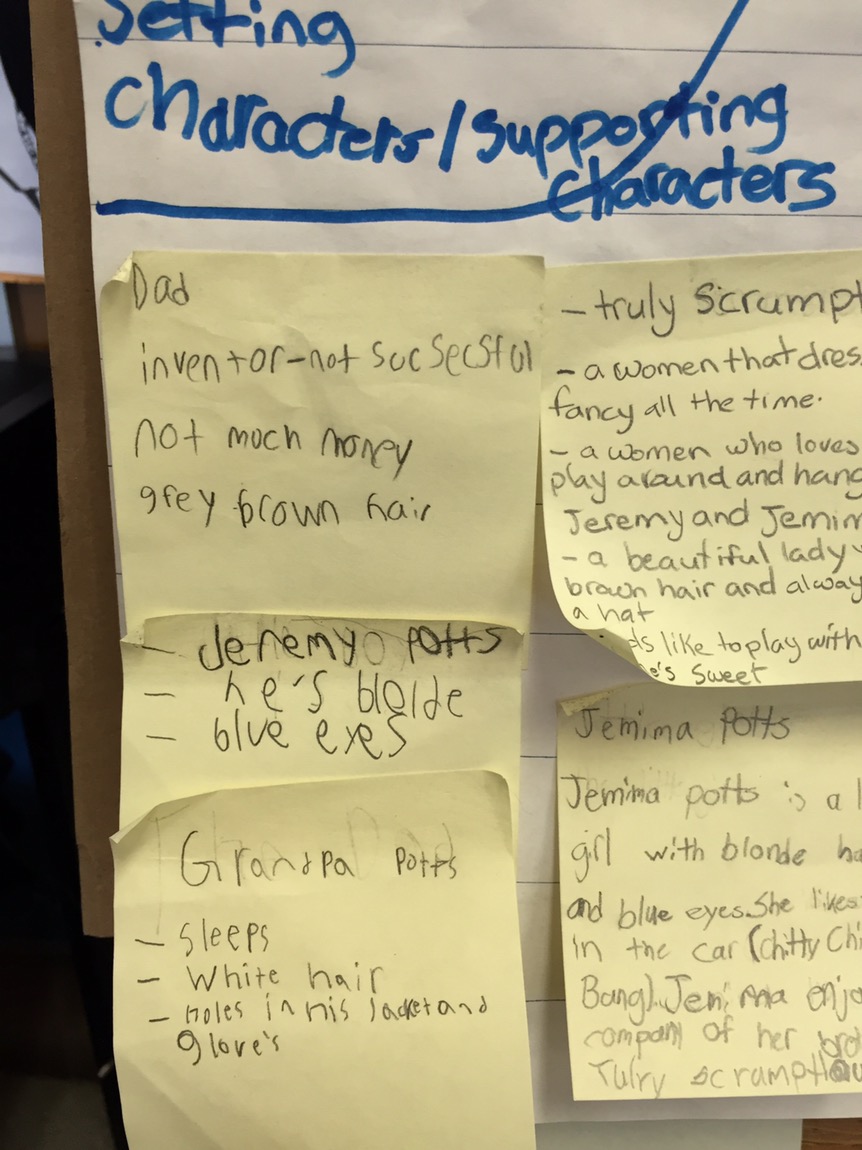 Setting
characters/supporting
characters
Dad
inventor-not sucsecsful
not much money
grey brown hair
- Jeremy potts
- he's blolde
- blue eyes
Grandpa Potts
- sleeps
- White hair
- Holes in his Jacket and
glove's
- truly Scrumpt
- a women that dres
fancy all the time.
- a women who loves
play around and hang
Jeremy and Jemim
- a beautiful lady
brown hair and alway
a hat
like to play with
e's sweet
Jemima Potts
Jemima potts is a l
girl with blonde ha
and blue eyes. She likes
in the car (chitty Chi
Bang). Jemima enjo
company of her bro
Tulry scramptiou